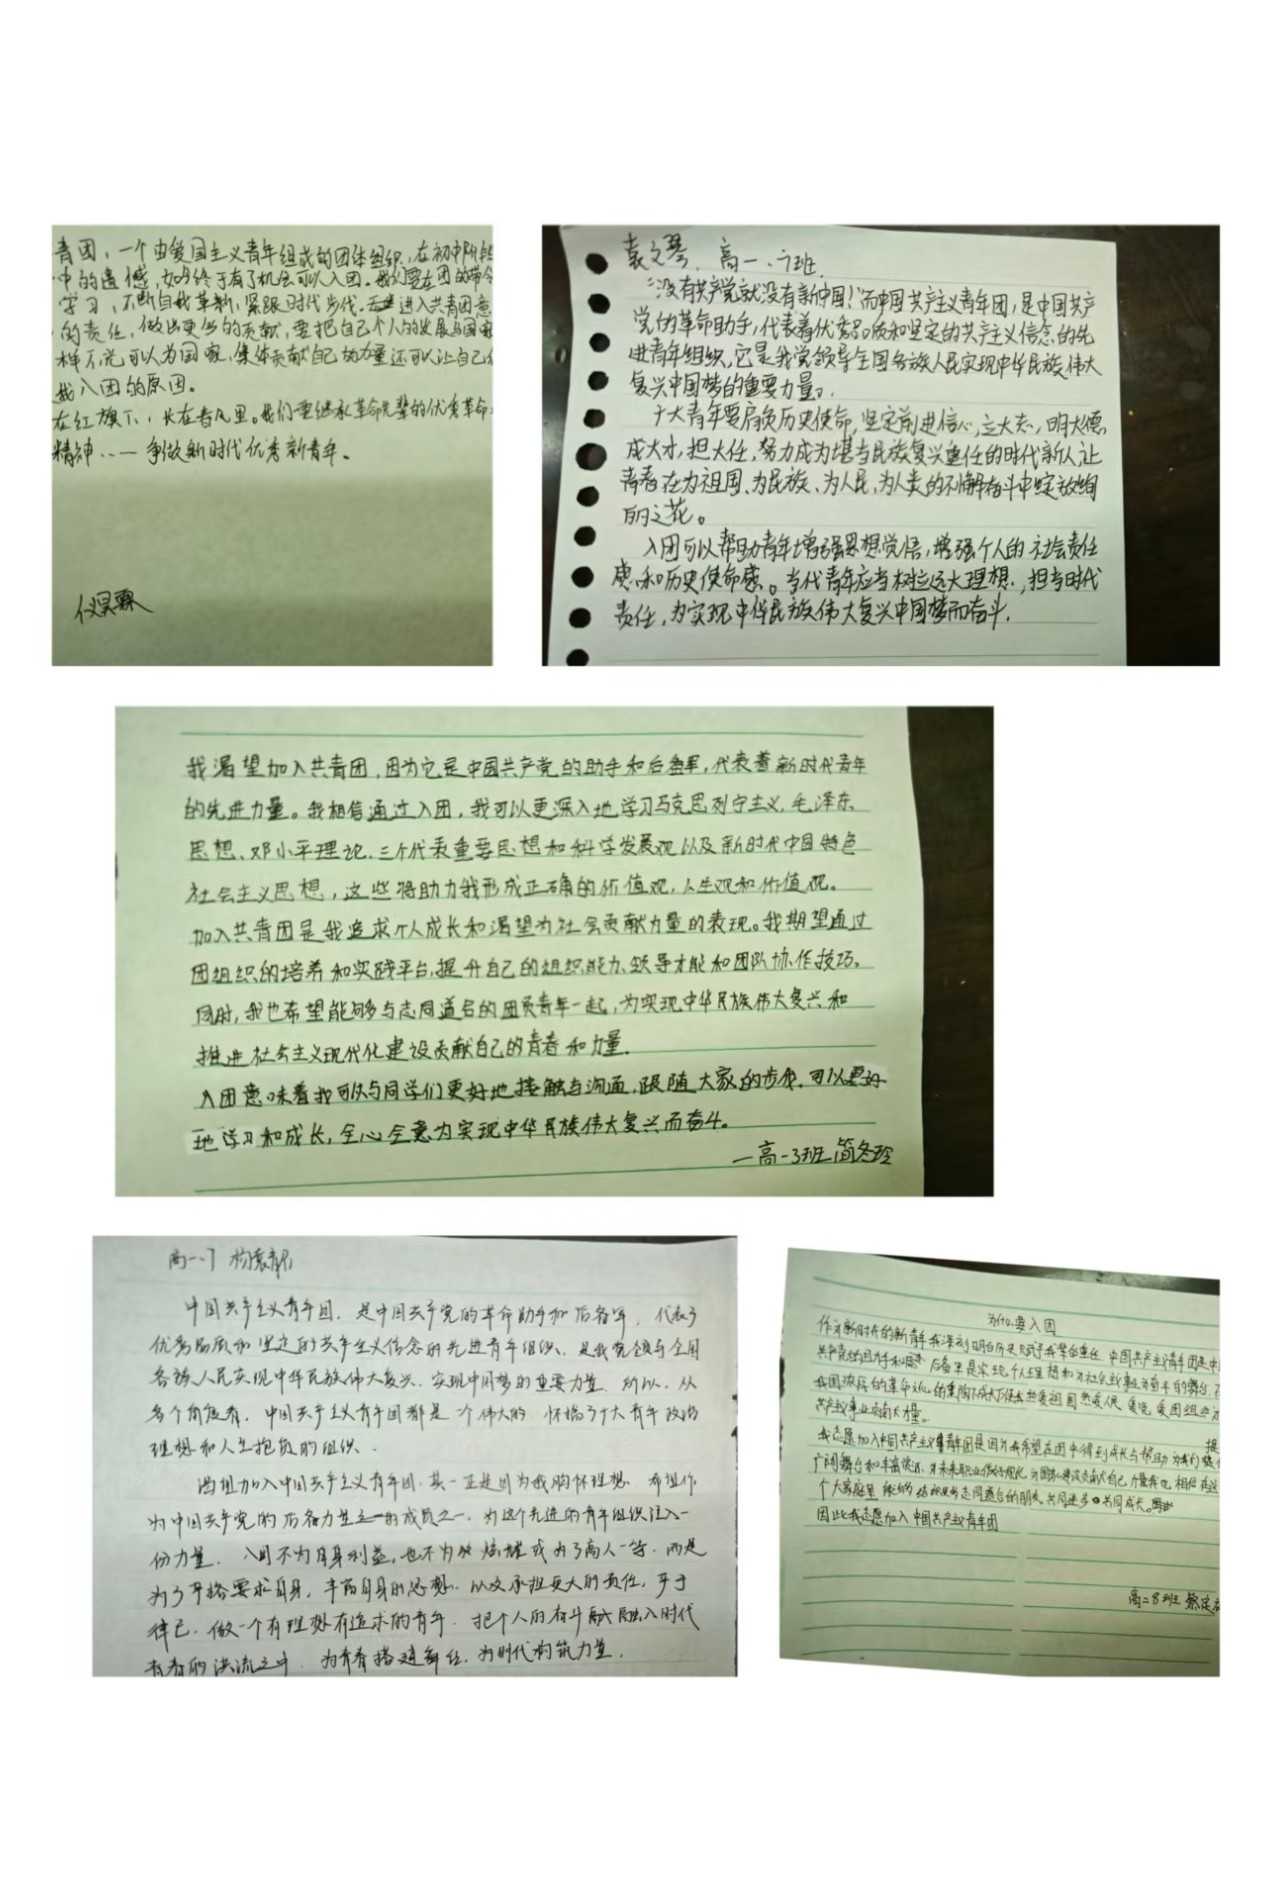 青团，一个由爱国主义青年组成的团体组织，在初中阶段
中的遗憾，如今终于有了机会可以入团。我们要在团的带令
学习，不断自我革新，紧跟时代步伐。进入共青团意
的责任，做出更多的贡献，要把自己个人的发展与国家
样不光可以为国家，集体贡献自己的力量还可以让自己
我入团的原因。
在红旗下，长在春风里。我们要继承革命先辈的优秀革命
精神……争做新时代优秀新青年。
袁文琴 高一、7班
“没有共产党就没有新中国！”而中国共产主义青年团，是中国共产
党的革命助手，代表着优秀品质和坚定的共产主义信念的先
进青年组织，它是我党领导全国各族人民实现中华民族伟大
复兴中国梦的重要力量。
广大青年要肩负历史使命，坚定前进信心，立大志，明大德
成大才，担大任，努力成为堪当民族复兴重任的时代新人，让
青春在为祖国、为民族、为人民、为人类的不懈奋斗中绽放绚
丽之花。
入团可以帮助青年增强思想觉悟，增强个人的社会责任
感和历史使命感。当代青年应当树立远大理想，担当时代
责任，为实现中华民族伟大复兴中国梦而奋斗.
我渴望加入共青团，因为它是中国共产党的助手和后备军，代表着新时代青年
的先进力量。我相信通过入团，我可以更深入地学习马克思列宁主义，毛泽东
思想、邓小平理论.三个代表重要思想和科学发展观以及新时代中国特色
社会主义思想，这些将助力我形成正确的价值观，人生观和价值观。
加入共青团是我追求个人成长和渴望为社会贡献力量的表现。我期望通过
团组织的培养和实践平台，提升自己的组织能力、领导才能和团队协作技巧。
同时，我也希望能够与志同道合的团员青年一起，为实现中华民族伟大复兴和
推进社会主义现代化建设贡献自己的青春和力量.
入团意味着我可以与同学们更好地接触与沟通，跟随大家的步伐，可以更好
地学习和成长，全心全意为实现中华民族伟大复兴而奋斗。
—高一3班 简冬玲
高一、7 杨袁
中国共产主义青年团，是中国共产党的革命助手和后备军，代表了
优秀品质和坚定的共产主义信念的先进青年组织、是我党领导全国
各族人民实现中华民族伟大复兴、实现中国梦的重要力量 所以，从
多个角度看，中国共产主义青年团都是一个伟大的、怀揣了广大青年政治
理想和人生抱负的组织、
因想加入中国共产主义青年团，其一正是因为我胸怀理想，希望作
为中国共产党的后备力量之一的成员之一，为这个先进的青年组织注入一
份力量. 入团不为自身利益，也不为炫耀或为了高人一等，而是
为了严格要求自身，丰富自身的思想，以及承担更大的责任，严于
律己，做一个有理想有追求的青年，把个人的奋斗融入时代
青春的洪流之中，为青春搭建舞台，为时代构筑力量.
为什么要入团
作为新时代的新青年我深刻明白所 责的重任，中国共产主义青年团是中
共产党的助手和后备军是实现个人理想和为社会 奋斗的舞台，
我国 的革命 的熏陶下成长 热爱祖国热爱人民，爱党，爱团组织
共产主义事业贡献力量。
我志愿加入中国共产主义青年团是因为我希望在团中得到成长与帮助 为我们提供
广阔舞台和丰富 ，对未来职业做好规化，为国家建设贡献自己力量 ，相信在这
个大家庭里 能够 结识更多志同道合的朋友，共同进步共同成长。
因此我志愿加入中国共产主义青年团
高二8班